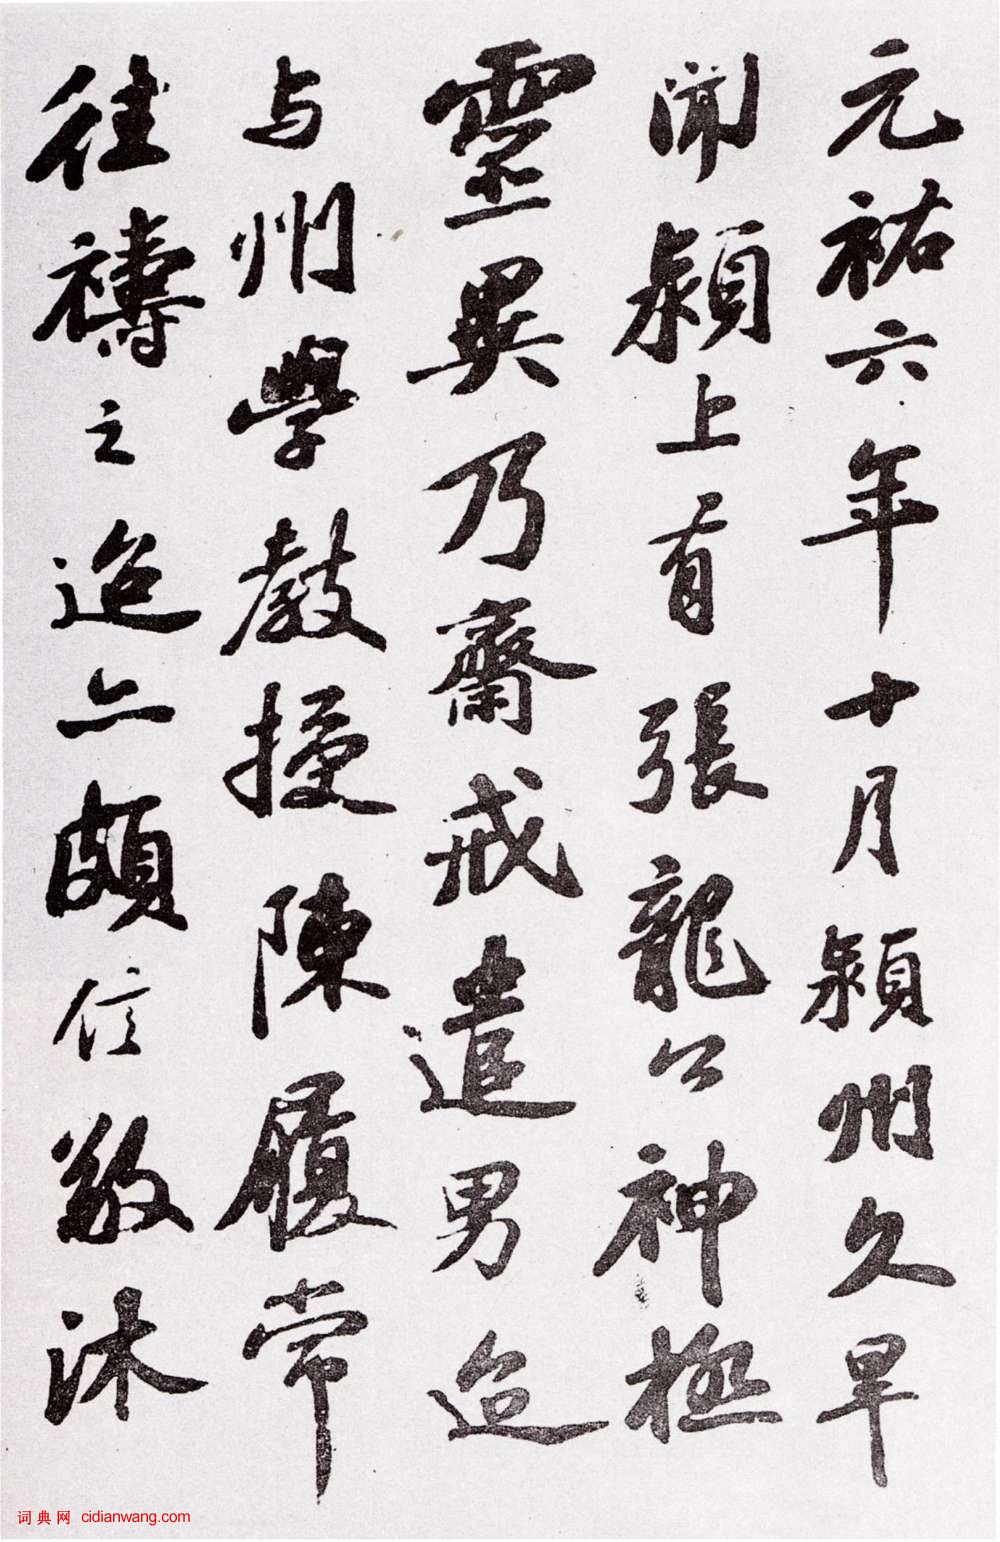 元祐六年十月潁州久旱
聞潁上有張龍公神極
靈異乃齋戒遣男迨
与州學教授陳履常
往禱之迨亦頗信敬沐
词典网 cidianwang.com